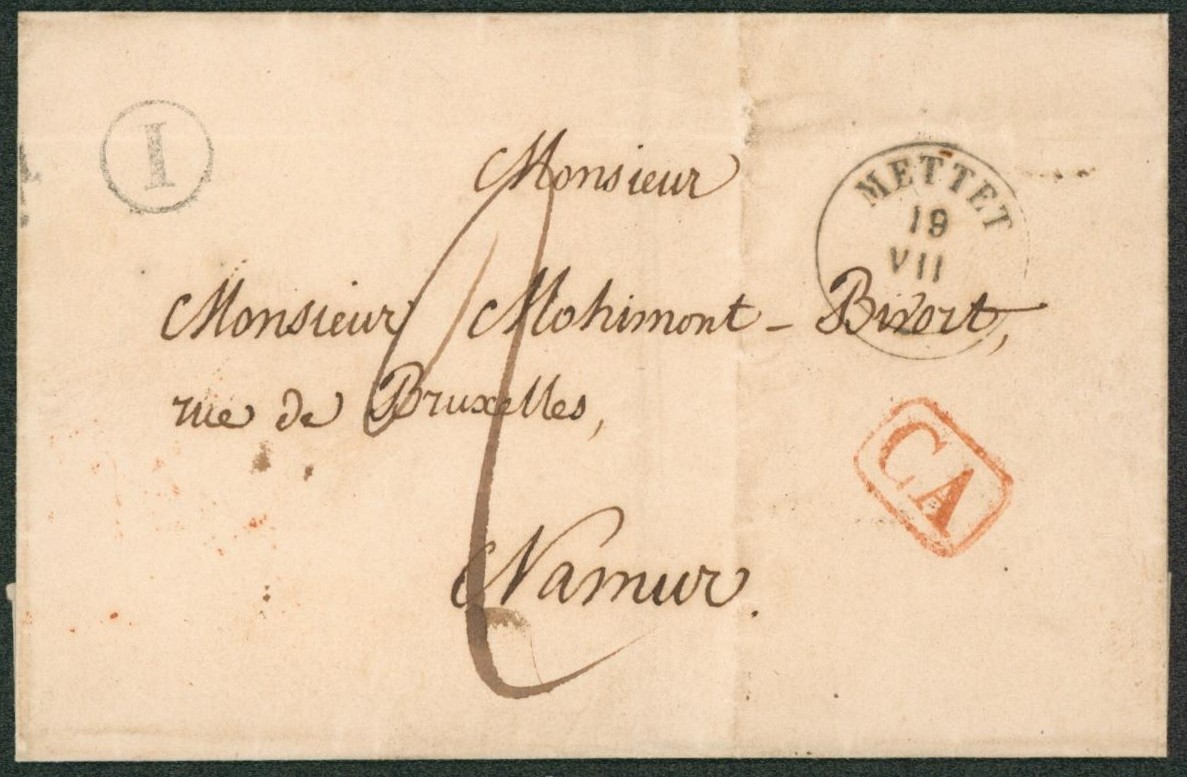 I
Monsieur
METTET
19
VII
Monsieur Mohimont - Bivort,
rue de Bruxelles,
CA
Namur.
2